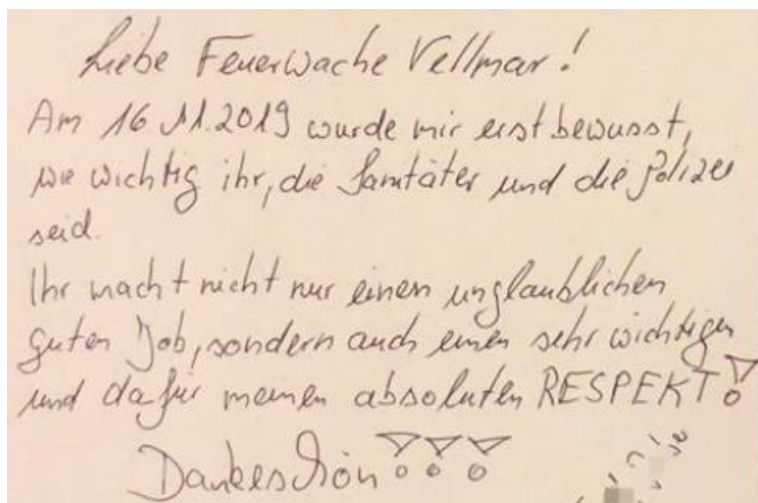 Liebe Feuerwache Vellmar!
Am 16.11.2019 wurde mir erst bewusst,
wie wichtig ihr, die Sanitäter und die Polizei
seid.
Ihr macht nicht nur einen unglaublichen
guten Job, sondern auch einen sehr wichtigen
und dafür meinen absoluten RESPEKT!
Dankeschön!!!